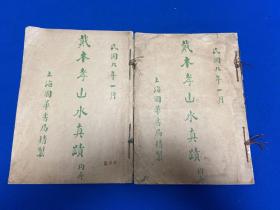 民國九年一月
戴本孝山水真蹟
上海國華書局精製
民國九年一月
戴本孝山水真蹟
上海國華書局精製